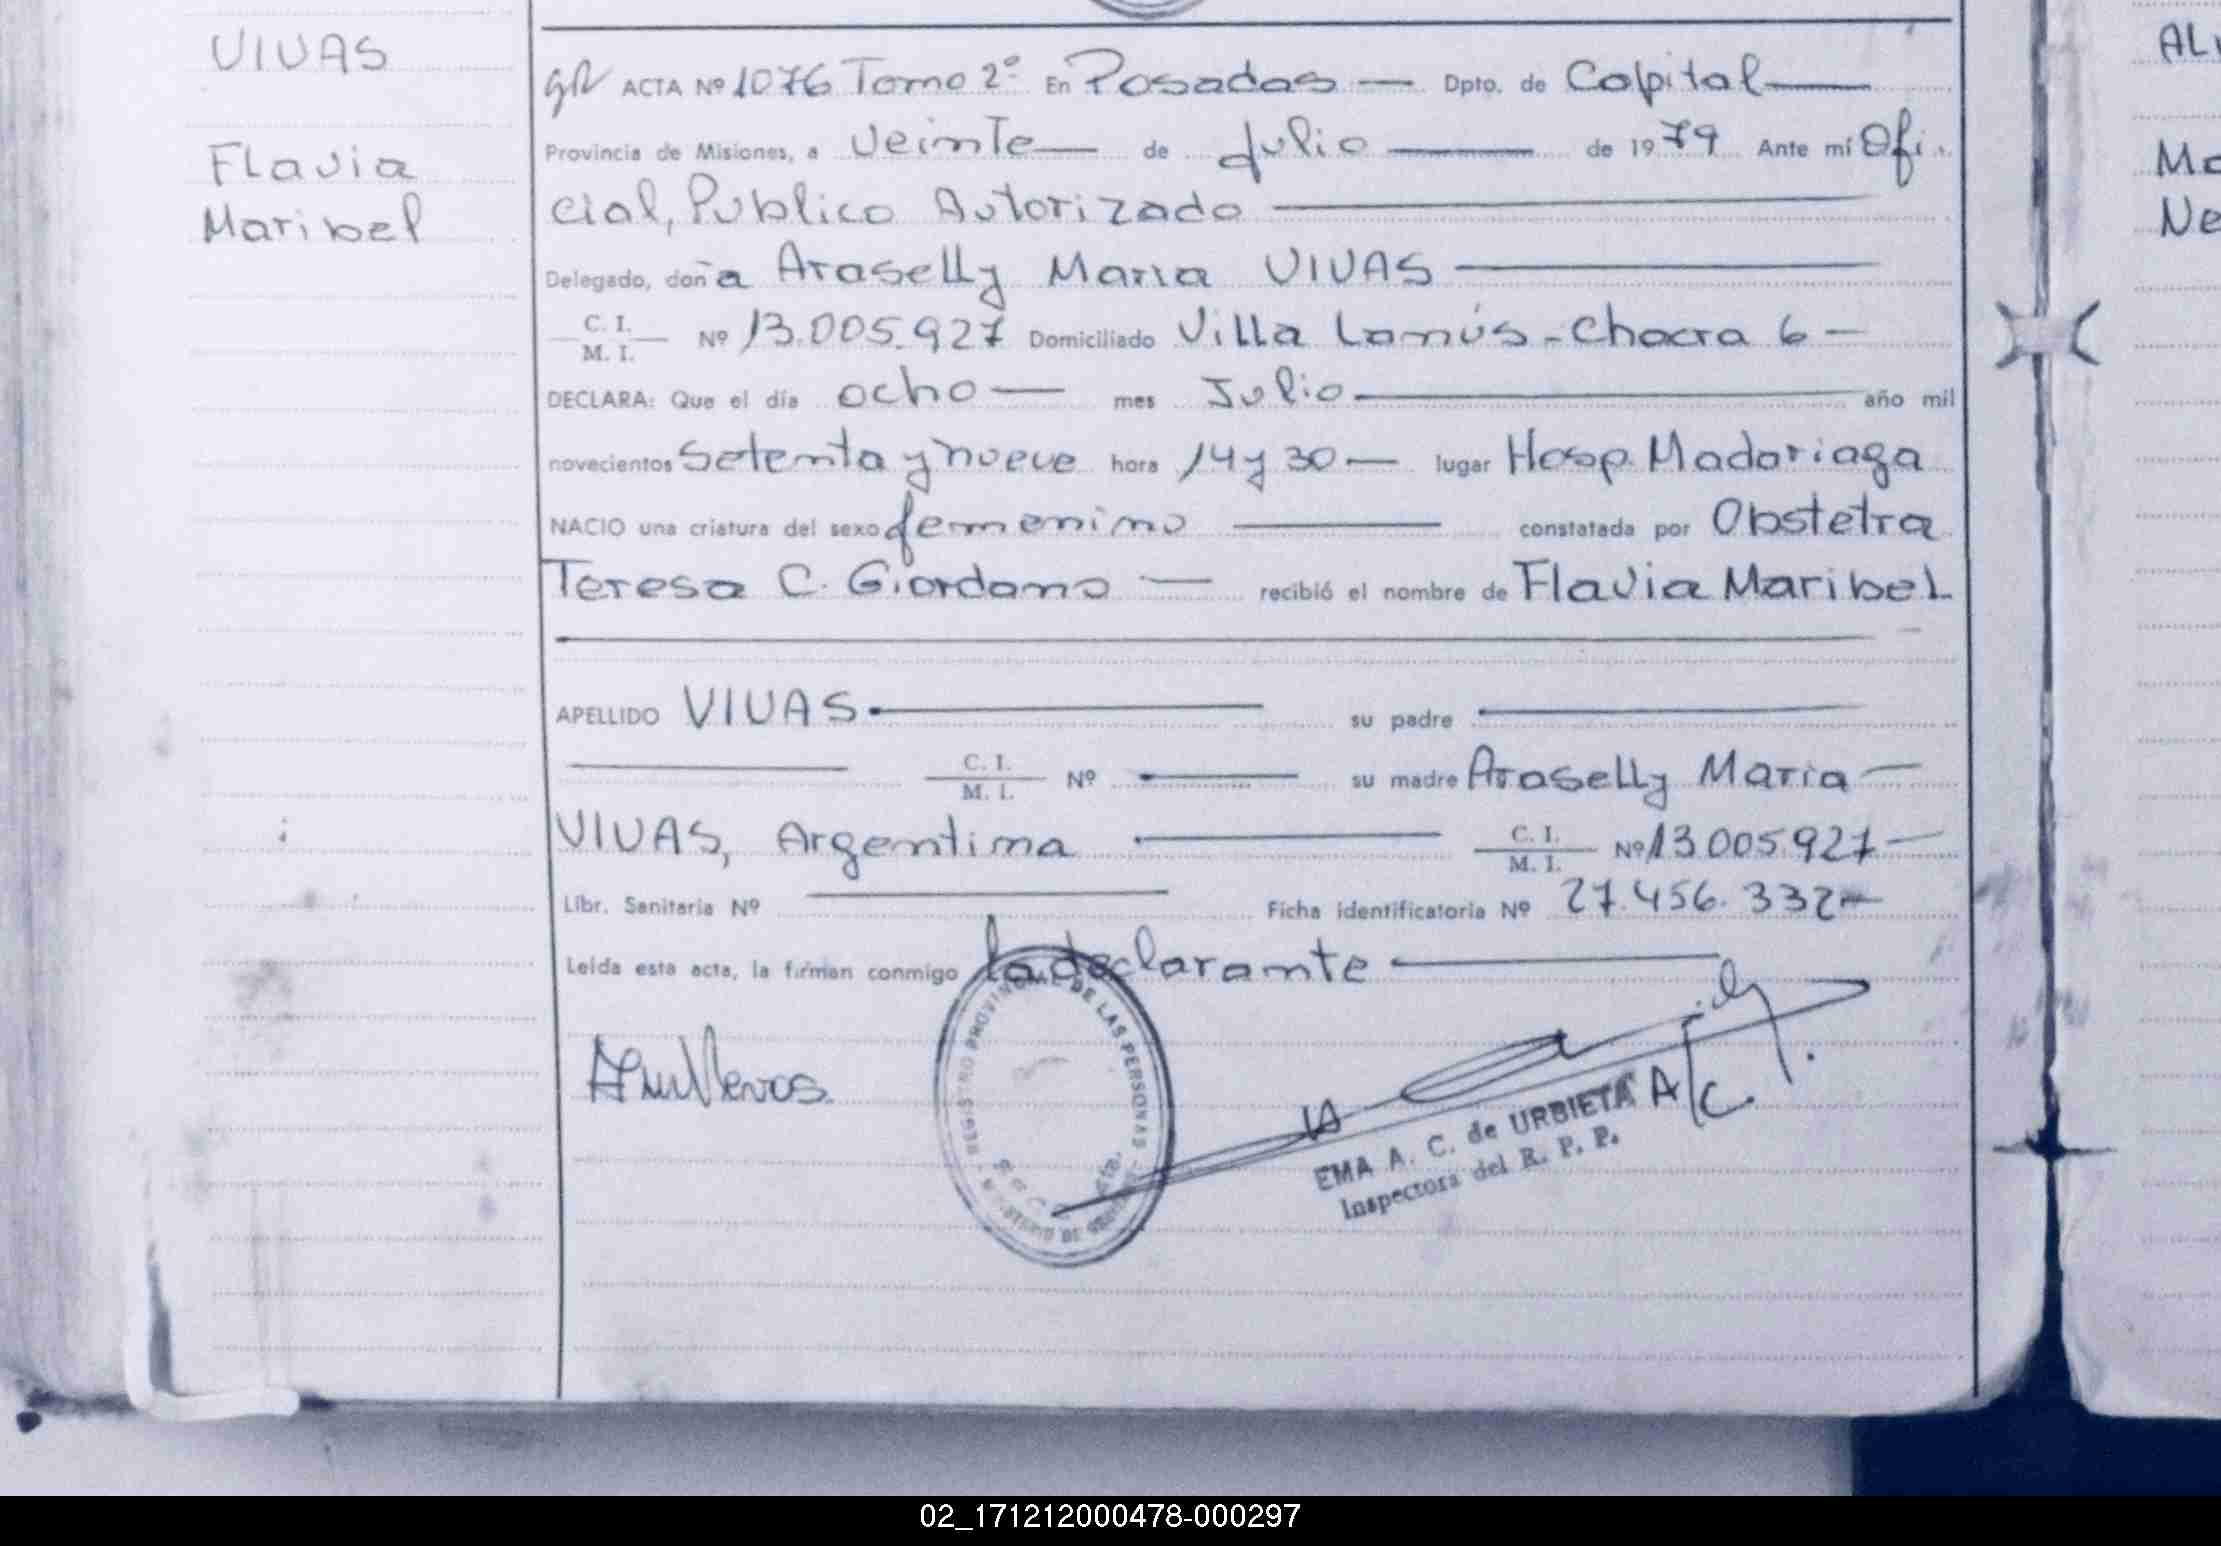 VIVAS
Flavia
Maribel
ACTA Nº 1076 Tomo 2º En Posadas — Dpto. de Capital —
Provincia de Misiones, a veinte — de Julio — de 1979 Ante mí Ofi
cial, Publico Autorizado —
Delegado, doña Araselly Maria VIVAS —
C. I. / M. I. Nº 13.005.927 Domiciliado Villa Lanús - Chacra 6 —
DECLARA: Que el día ocho — mes Julio — año mil
novecientos setenta y nueve hora 14 y 30 — lugar Hosp. Madariaga
NACIO una criatura del sexo femenino — constatada por Obstetra
Teresa C. Giordano — recibió el nombre de Flavia Maribel
APELLIDO VIVAS — su padre —
— C. I. / M. I. Nº — su madre Araselly Maria —
VIVAS, Argentina — C. I. / M. I. Nº 13.005.927 —
Libr. Sanitaria Nº — Ficha identificatoria Nº 27.456.332 —
Leída esta acta, la firman conmigo la declarante —
REGISTRO PROVINCIAL DE LAS PERSONAS
A/C.
EMA A. C. de URBIETA
Inspectora del R. P. P.
AL
Ma
Ne
02_171212000478-000297